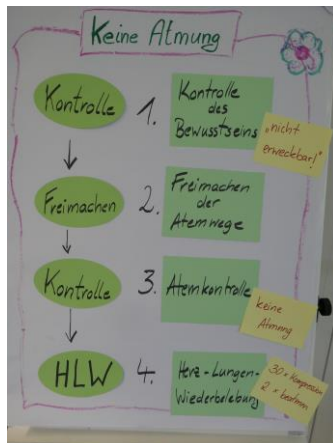 Keine Atmung
Kontrolle
1.
Kontrolle
des
Bewusstseins
"nicht
erweckbar!"
Freimachen
2.
Freimachen
der
Atemwege
Kontrolle
3.
Atemkontrolle
keine
Atmung
HLW
4.
Herz-Lungen-
Wiederbelebung
30 x Kompression
2 x beatmen